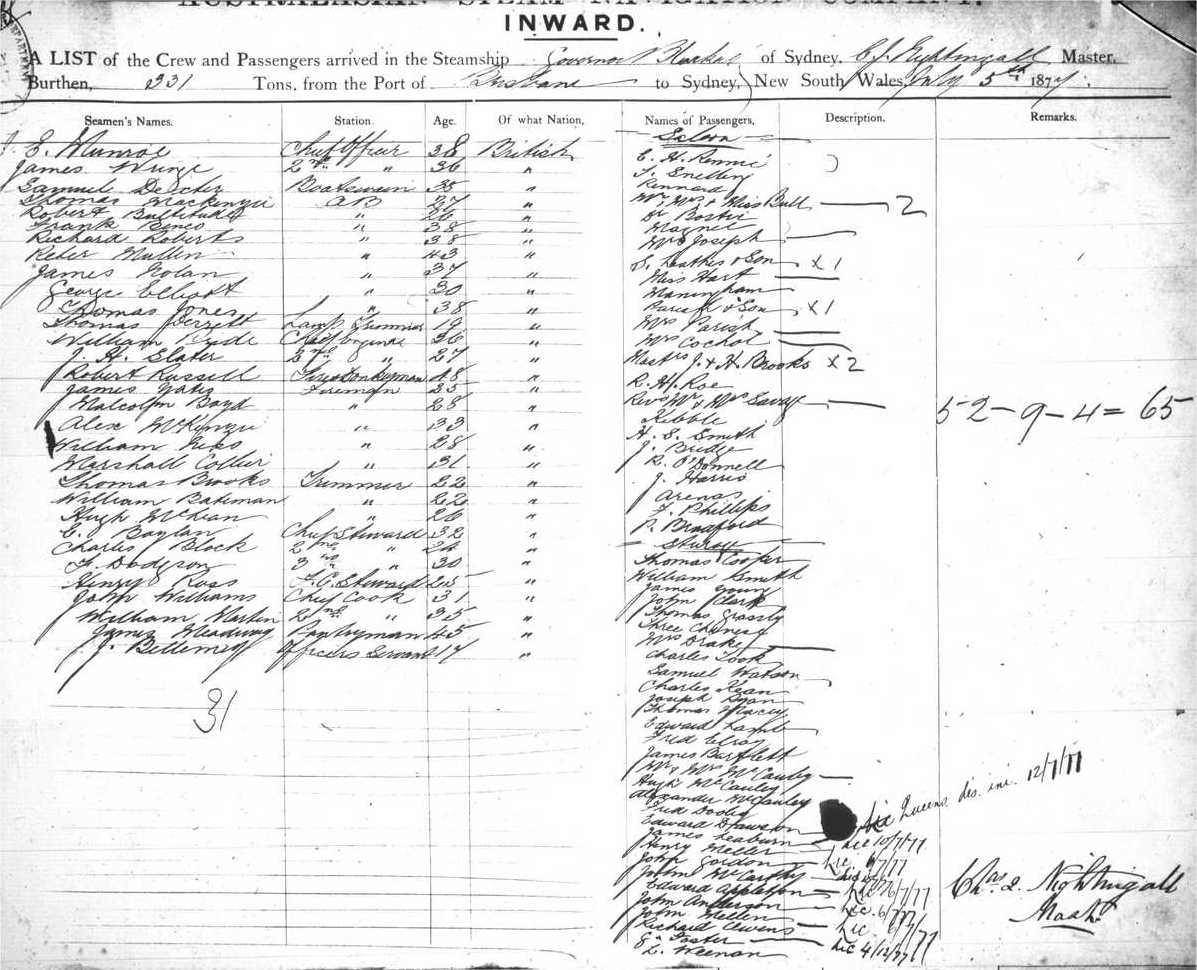 AUSTRALASIAN STEAM NAVIGATION COMPANY.
INWARD.
A LIST of the Crew and Passengers arrived in the Steamship Governor Blackall of Sydney, C J Nightingall Master,
Burthen, 331 Tons, from the Port of Brisbane to Sydney, New South Wales, July 5th 1877.
Seamen's Names. Station. Age. Of what Nation, Names of Passengers, Description. Remarks.
E. Munroe Chief Officer 38 British
James 2nd " 36 "
Samuel Dexter Boatswain 35 "
Thomas Mackenzie AB 27 "
Robert " 26 "
Frank " 38 "
Richard Roberts " 38 "
Peter Mullen " 43 "
James Nolan " 37 "
George Elliott " 30 "
Thomas Jones " 38 "
Thomas Lamp Trimmer 19 "
William Chief Engineer 36 "
J. H. Slater 2nd " 27 "
Robert Russell 48 "
James Yates Fireman 25 "
Malcolm Boyd " 28 "
Alex McKenzie " 33 "
William " 28 "
Marshall Collier " 31 "
Thomas Brooks Trimmer 22 "
William Bateman " 22 "
Hugh McLean " 26 "
E. Boylan Chief Steward 32 "
Charles Block 2nd " 24 "
F. Dodgson 3rd " 30 "
Henry Ross F.C. Steward 25 "
John Williams Chief Cook 31 "
William Martin 2nd " 35 "
James Meadway Pantryman 45 "
J. Bellemey Officers Servant 17 "
31
Saloon
E. H. Rennie
J. Snelling
Kennard
Mr, Mrs & Miss Bull 2
Dr
Magnet
Mrs Joseph
& Son x 1
Miss Hart
Maningham
Parish & Son x 1
Mrs Parish
Mrs
Masters J. & H. Brooks x 2
R. H. Roe
Revd Mr & Mrs Savage
Kibble
H. S. Smith
J. Bridge
R. O'Donnell
J. Harris
Arenas
F. Phillips
P. Bradford
52 - 9 - 4 = 65
Thomas Cooper
William Smith
James Young
John Clark
Thomas Grassly
Three Chinese
Mrs Drake
Charles Took
Samuel Watson
Charles Kean
Joseph Ryan
Thomas
Edward Lamb
Fred Elroy
James Bartlett
Mr & Mrs McCauley
Hugh McCauley
Alexander McCauley
Fred Dooley Lic Queens dis. ini. 12/7/77
Edward Dawson
James Leaburn Lic 10/7/77
Henry Meller
John Gordon
John McCarthy
Edward Appleton
John Anderson Lic. 6/7/77
John Mellen
Richard Owens
G. Foster Lic 4/12/77
L. Weenan
Chas J. Nightingall
Master